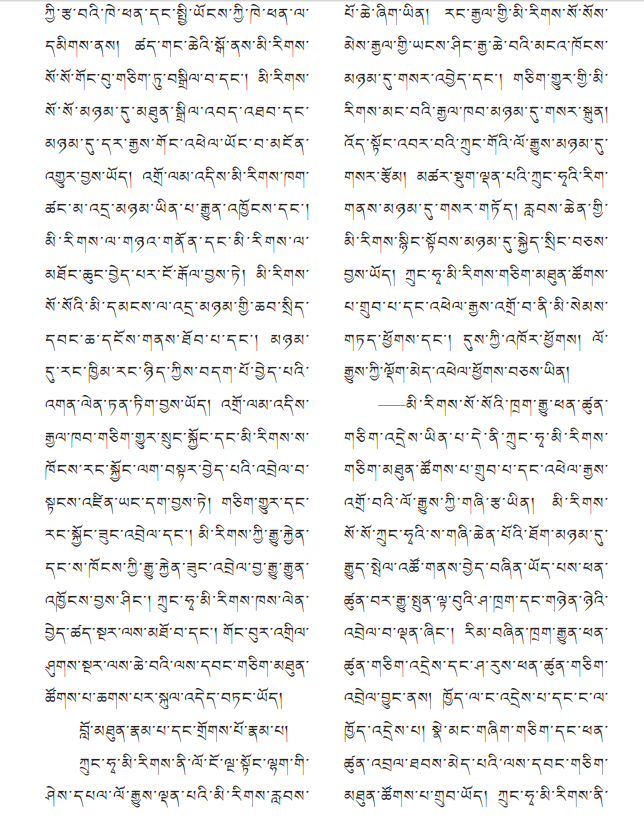 ཀྱི་རྩ་བའི་ཁེ་ཕན་དང་སྤྱི་ཡོངས་ཀྱི་ཁེ་ཕན་ལ་
དམིགས་ནས། ཚད་གང་ཆེའི་སྒོ་ནས་མི་རིགས་
སོ་སོ་གོང་བུ་གཅིག་ཏུ་བསྒྲིལ་བ་དང༌། མི་རིགས་
སོ་སོ་མཉམ་དུ་མཐུན་སྒྲིལ་འབད་འཐབ་དང་
མཉམ་དུ་དར་རྒྱས་གོང་འཕེལ་ཡོང་བ་མངོན་
འགྱུར་བྱས་ཡོད། འགྲོ་ལམ་འདིས་མི་རིགས་ཁག་
ཚང་མ་འདྲ་མཉམ་ཡིན་པ་རྒྱུན་འཁྱོངས་དང༌།
མི་རིགས་ལ་གཉའ་གནོན་དང་མི་རིགས་ལ་
མཐོང་ཆུང་བྱེད་པར་ངོ་རྒོལ་བྱས་ཏེ། མི་རིགས་
སོ་སོའི་མི་དམངས་ལ་འདྲ་མཉམ་གྱི་ཆབ་སྲིད་
དབང་ཆ་དངོས་གནས་ཐོབ་པ་དང༌། མཉམ་
དུ་རང་ཁྱིམ་རང་ཉིད་ཀྱིས་བདག་པོ་བྱེད་པའི་
འགན་ལེན་ཏན་ཏིག་བྱས་ཡོད། འགྲོ་ལམ་འདིས་
རྒྱལ་ཁབ་གཅིག་གྱུར་སྲུང་སྐྱོང་དང་མི་རིགས་ས་
ཁོངས་རང་སྐྱོང་ལག་བསྟར་བྱེད་པའི་འབྲེལ་བ་
སྟངས་འཛིན་ཡང་དག་བྱས་ཏེ། གཅིག་གྱུར་དང་
རང་སྐྱོང་ཟུང་འབྲེལ་དང༌། མི་རིགས་ཀྱི་རྒྱུ་རྐྱེན་
དང་ས་ཁོངས་ཀྱི་རྒྱུ་རྐྱེན་ཟུང་འབྲེལ་བྱ་རྒྱུ་རྒྱུན་
འཁྱོངས་བྱས་ཤིང༌། ཀྲུང་ཧྭ་མི་རིགས་ཁས་ལེན་
བྱེད་ཚད་སྔར་ལས་མཐོ་བ་དང༌། གོང་བུར་འགྲིལ་
ཤུགས་སྔར་ལས་ཆེ་བའི་ལས་དབང་གཅིག་མཐུན་
ཚོགས་པ་ཆགས་པར་སྐུལ་འདེད་བཏང་ཡོད།
བློ་མཐུན་རྣམ་པ་དང་གྲོགས་པོ་རྣམ་པ།
ཀྲུང་ཧྭ་མི་རིགས་ནི་ལོ་ངོ་ལྔ་སྟོང་ལྷག་གི་
ཤེས་དཔལ་ལོ་རྒྱུས་ལྡན་པའི་མི་རིགས་རླབས་
པོ་ཆེ་ཞིག་ཡིན། རང་རྒྱལ་གྱི་མི་རིགས་སོ་སོས་
མེས་རྒྱལ་གྱི་ཡངས་ཤིང་རྒྱ་ཆེ་བའི་མངའ་ཁོངས་
མཉམ་དུ་གསར་འབྱེད་དང༌། གཅིག་གྱུར་གྱི་མི་
རིགས་མང་བའི་རྒྱལ་ཁབ་མཉམ་དུ་གསར་སྐྲུན།
འོད་སྟོང་འབར་བའི་ཀྲུང་གོའི་ལོ་རྒྱུས་མཉམ་དུ་
གསར་རྩོམ། མཚར་སྡུག་ལྡན་པའི་ཀྲུང་ཧྭའི་རིག་
གནས་མཉམ་དུ་གསར་གཏོད། རླབས་ཆེན་གྱི་
མི་རིགས་སྙིང་སྟོབས་མཉམ་དུ་སྐྱེད་སྲིང་བཅས་
བྱས་ཡོད། ཀྲུང་ཧྭ་མི་རིགས་གཅིག་མཐུན་ཚོགས་
པ་གྲུབ་པ་དང་འཕེལ་རྒྱས་འགྲོ་བ་ནི་མི་སེམས་
གཏད་ཕྱོགས་དང༌། དུས་ཀྱི་འཁོར་ཕྱོགས། ལོ་
རྒྱུས་ཀྱི་ལྡོག་མེད་འཕེལ་ཕྱོགས་བཅས་ཡིན།
——མི་རིགས་སོ་སོའི་ཁྲག་རྒྱུ་ཕན་ཚུན་
གཅིག་འདྲེས་ཡིན་པ་དེ་ནི་ཀྲུང་ཧྭ་མི་རིགས་
གཅིག་མཐུན་ཚོགས་པ་གྲུབ་པ་དང་འཕེལ་རྒྱས་
འགྲོ་བའི་ལོ་རྒྱུས་ཀྱི་གཞི་རྩ་ཡིན། མི་རིགས་
སོ་སོ་ཀྲུང་ཧྭའི་ས་གཞི་ཆེན་པོའི་ཐོག་མཉམ་དུ་
རྒྱུད་སྤེལ་འཚོ་གནས་བྱེད་བཞིན་ཡོད་པས་ཕན་
ཚུན་བར་རྒྱུ་སྤུན་ལྟ་བུའི་ཤ་ཁྲག་དང་གཉེན་ཉེའི་
འབྲེལ་བ་ལྡན་ཞིང༌། རིམ་བཞིན་ཁྲག་རྒྱུན་ཕན་
ཚུན་གཅིག་འདྲེས་དང་ཤ་རུས་ཕན་ཚུན་གཅིག་
འབྲེལ་བྱུང་ནས། ཁྱོད་ལ་ང་འདྲེས་པ་དང་ང་ལ་
ཁྱོད་འདྲེས་པ། སྣེ་མང་གཞིག་གཅིག་དང་ཕན་
ཚུན་འབྲལ་ཐབས་མེད་པའི་ལས་དབང་གཅིག་
མཐུན་ཚོགས་པ་གྲུབ་ཡོད། ཀྲུང་ཧྭ་མི་རིགས་ནི་